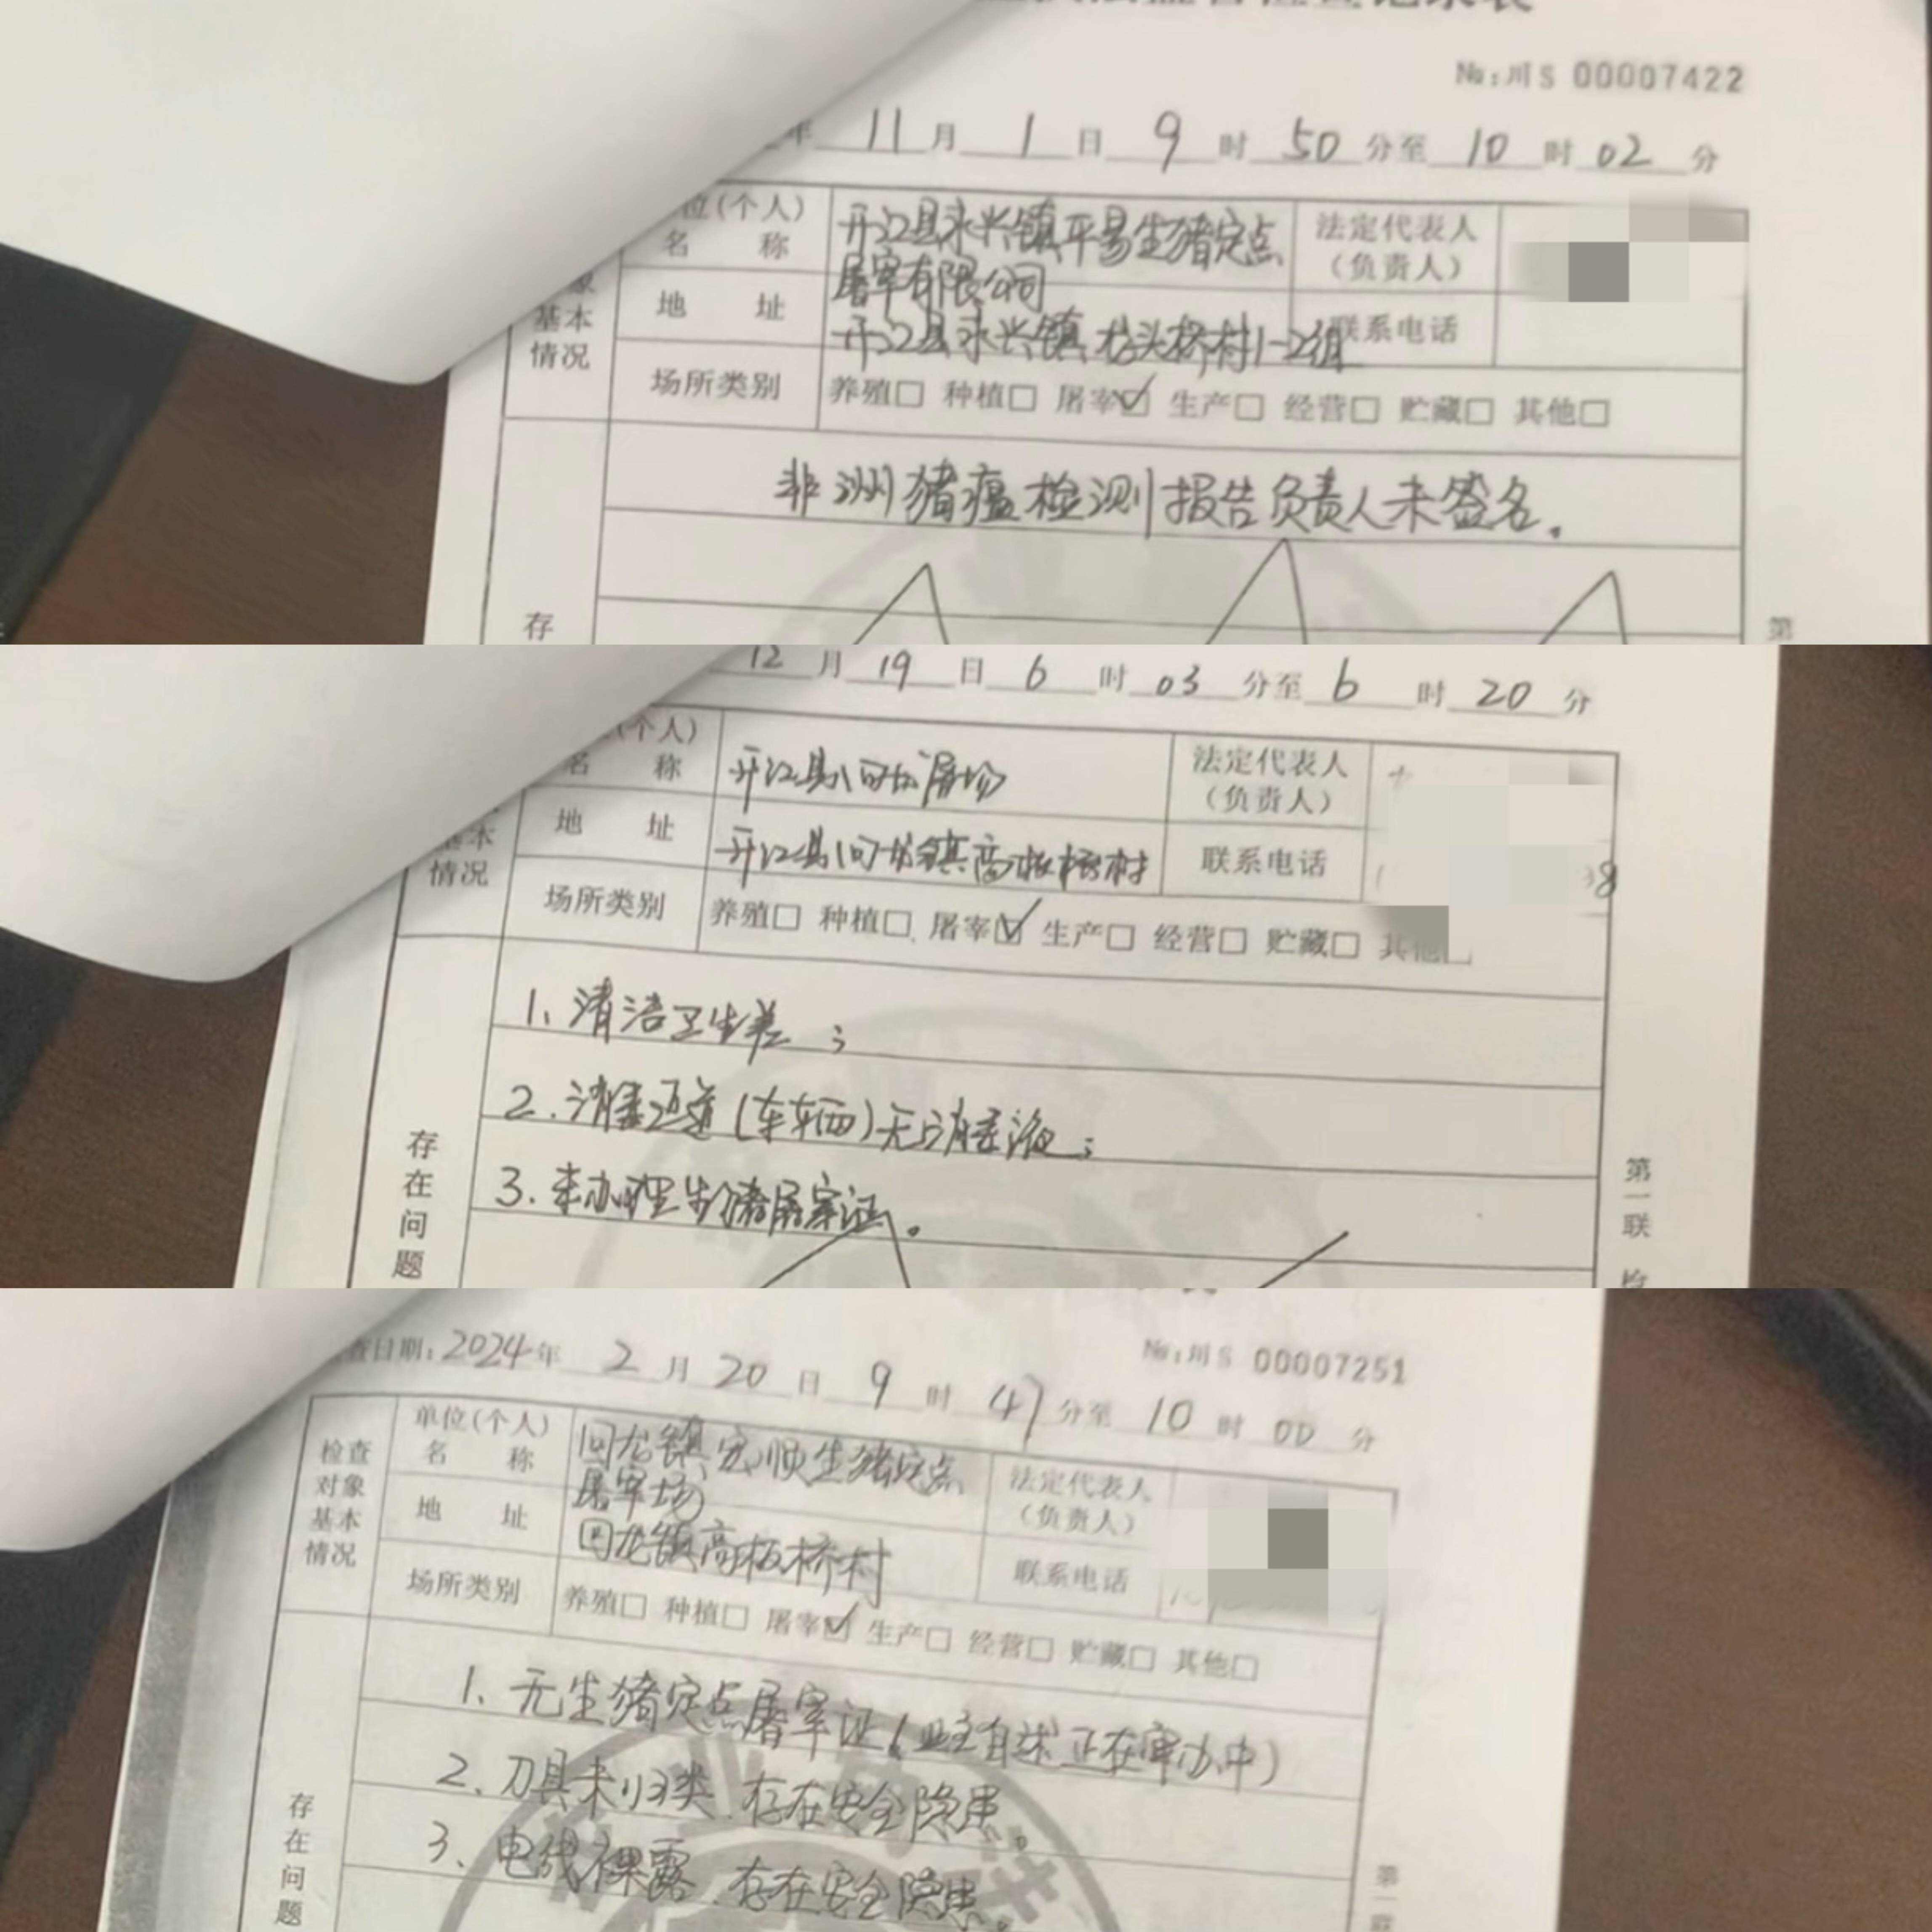 No:川S 00007422
年 11 月 1 日 9 时 50 分至 10 时 02 分
位(个人)
名 称
开江县永兴镇平易生猪定点
屠宰有限公司
法定代表人
(负责人)
基本
情况
地 址
开江县永兴镇龙头桥村1-2组
联系电话
场所类别
养殖□ 种植□ 屠宰☑ 生产□ 经营□ 贮藏□ 其他□
非洲猪瘟检测报告负责人未签名。
存
第
12 月 19 日 6 时 03 分至 6 时 20 分
(个人)
名 称
开江县回龙屠场
法定代表人
(负责人)
基本
情况
地 址
开江县回龙镇高板桥村
联系电话
8
场所类别
养殖□ 种植□ 屠宰☑ 生产□ 经营□ 贮藏□ 其他□
1、清洁卫生差;
2.消毒通道(车辆)无消毒液;
3.未办理生猪屠宰证。
存在问题
第一联
查日期:2024年 2 月 20 日 9 时 47 分至 10 时 00 分
No:川S 00007251
检查
对象
基本
情况
单位(个人)
名 称
回龙镇宏顺生猪定点
屠宰场
法定代表人
(负责人)
地 址
回龙镇高板桥村
联系电话
场所类别
养殖□ 种植□ 屠宰☑ 生产□ 经营□ 贮藏□ 其他□
1、无生猪定点屠宰证(业主自述正在审办中)
2、刀具未归类,存在安全隐患。
3、电线裸露,存在安全隐患。
存在问题
第一联